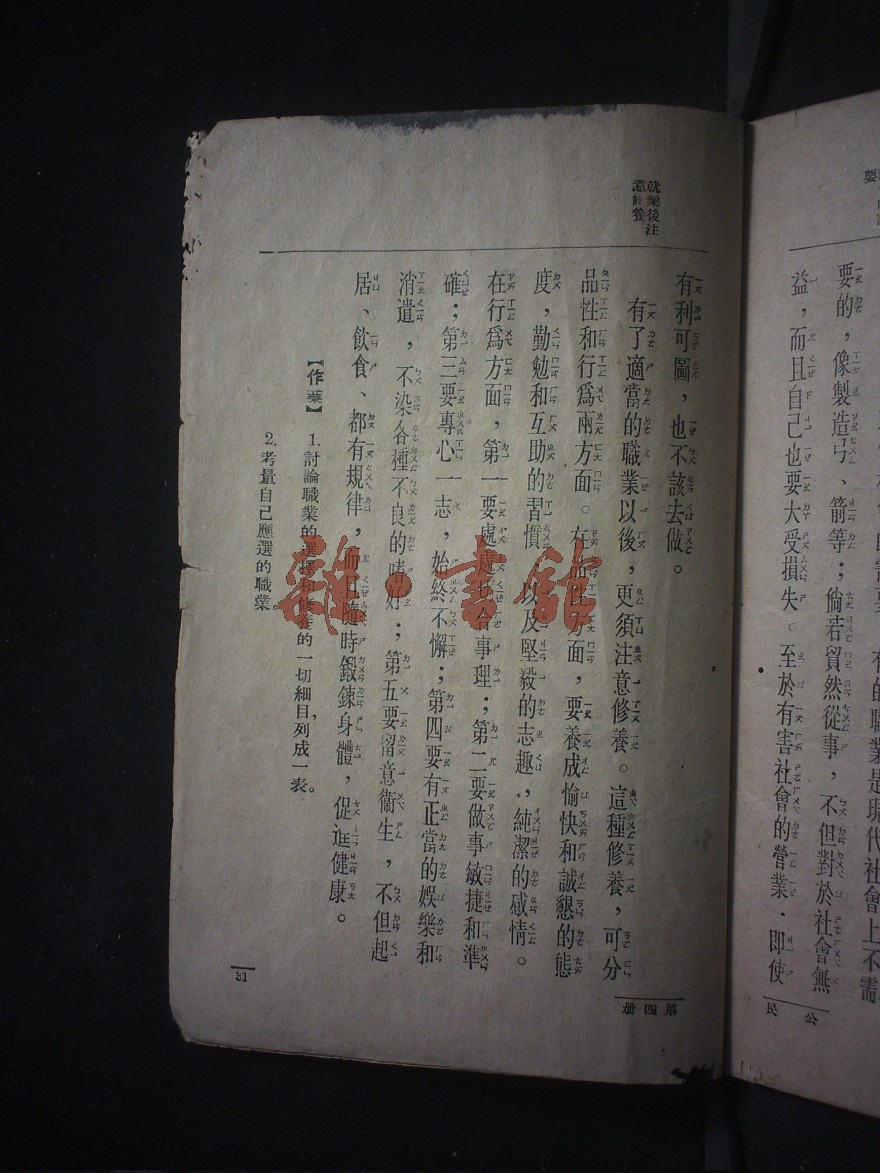 要的，像製造弓、箭等；倘若貿然從事，不但對於社會無
益，而且自己也要大受損失。至於有害社會的營業，即使
公民
就業後注
意修養
有利可圖，也不該去做。
有了適當的職業以後，更須注意修養。這種修養，可分
品性和行爲兩方面。在品性方面，要養成愉快和誠懇的態
度，勤勉和互助的習慣，以及堅毅的志趣，純潔的感情。
在行爲方面，第一要處處切合事理；第二要做事敏捷和準
確；第三要專心一志，始終不懈；第四要有正當的娛樂和
消遣，不染各種不良的嗜好；第五要留意衞生，不但起
居、飲食、都有規律，而且隨時鍛鍊身體，促進健康。
【作業】 1. 討論職業的選擇和修養的一切細目，列成一表。
2. 考量自己應選的職業
第四册
31
雜·書館